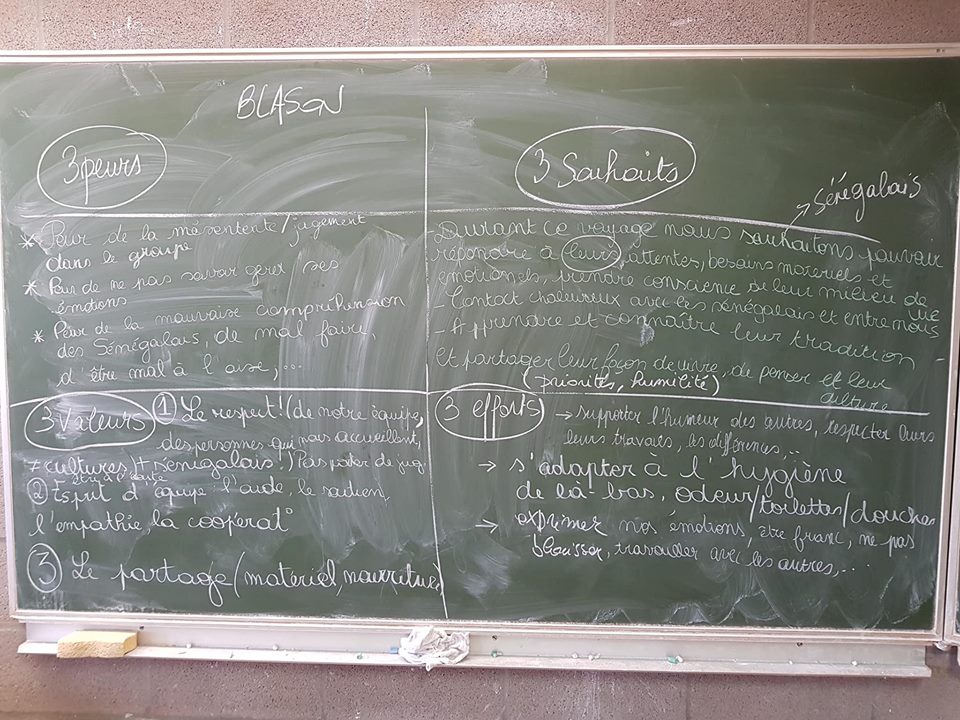 BLASON
3 peurs
* Peur de la mésentente/jugement
dans le groupe
* Peur de ne pas savoir gérer ses
émotions
* Peur de la mauvaise compréhension
des Sénégalais, de mal faire,
d'être mal à l'aise, ...
3 Souhaits
→ Sénégalais
- Durant ce voyage nous souhaitons pouvoir
répondre à leurs attentes, besoins materiels et
émotionels, prendre conscience de leur milieu de vie
- Contact chaleureux avec les sénégalais et entre nous
- Apprendre et connaître leur tradition
et partager leur façon de vivre, de penser et leur
culture
(priorités, humilité)
3 Valeurs
① Le respect! (de notre équipe,
des personnes qui nous accueillent,
≠ cultures, + sénégalais!) Pas porter de jug.
② Esprit d'équipe l'aide, le soutien,
l'empathie la coopérat°
③ Le partage/matériel, nourriture
3 efforts
→ supporter l'humeur des autres, respecter leurs
leurs travails, les différences, ...
→ s'adapter à l'hygiène
de là-bas, odeur/toilettes/douches
→ exprimer nos émotions, être franc, ne pas
blesser, travailler avec les autres, ...